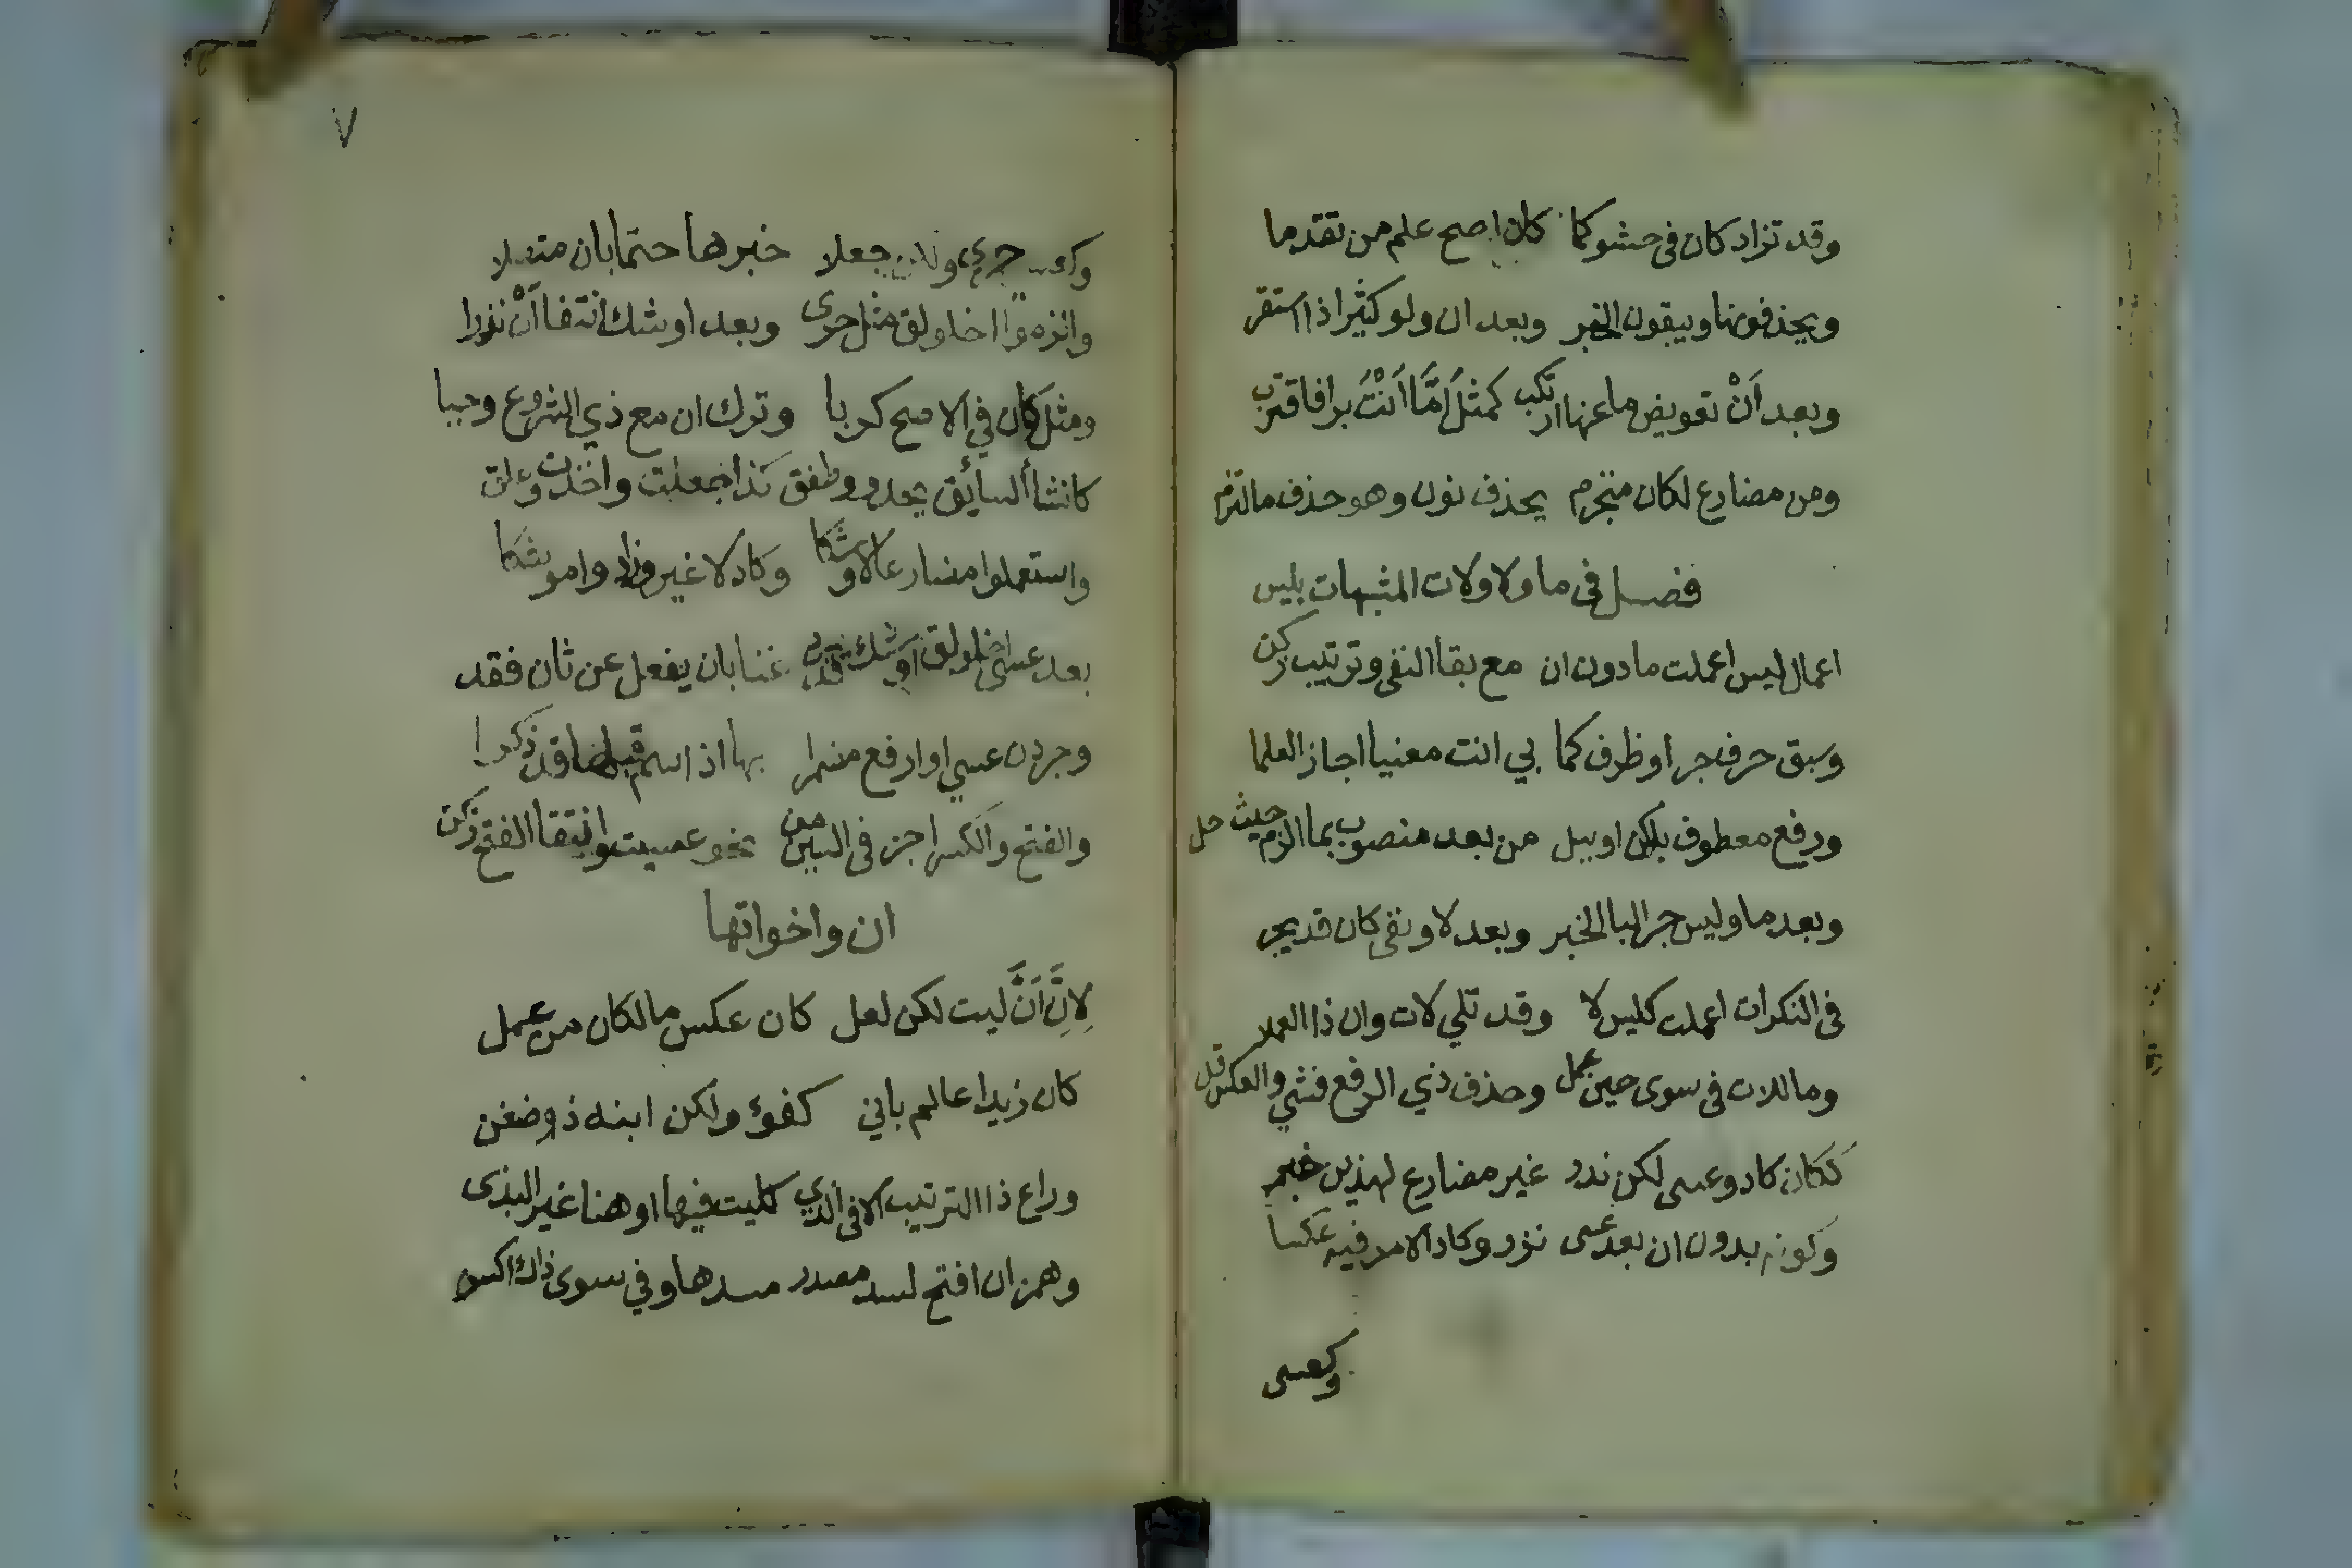 وقد تزاد كان في حشو كما كان اصح علم من تقدما
ويحذفونها ويبقون الخبر وبعد ان ولو كثيرا ذا استقر
وبعد اَنْ تعويض ما عنها ارتكب كمثل اَمَّا اَنْتَ برا فاقترب
ومن مضارع لكان منجزم يحذف نون وهو حذف ما التزم
فصل في ما ولا ولات المشبهات بليس
اعمال ليس اعملت ما دون ان مع بقا النفي وترتيب زكن
وسبق حرف جر او ظرف كما بي انت معنيا اجاز العلما
ورفع معطوف بلكن او ببل من بعد منصوب بما الزم حيث حل
وبعد ما وليس جر البا الخبر وبعد لا ونفي كان قد يجر
في النكرات اعملت كليس لا وقد تلي لات وان ذا العملا
وما للات في سوى حين عمل وحذف ذي الرفع فشي والعكس قل
ككان كاد وعسى لكن ندر غير مضارع لهذين خبر
وكونه بدون ان بعد عسى نزر وكاد الامر فيه عكسا
وكعسى
٧
حرى ولكن جعلا خبرها حتما بان متصلا
والزموا اخلولق مثل حرى وبعد اوشك انتفا اَنْ نزرا
ومثل كان في الاصح كربا وترك ان مع ذي الشروع وجبا
كانشأ السايق يحدو وطفق كذا جعلت واخذت وعلق
واستعملوا مضارعا لاوشكا وكاد لا غير وزاد وا موشكا
بعد عسى اخلولق اوشك قد يرد غنا بان يفعل عن ثان فقد
وجردن عسى او ارفع مضمرا بها اذا اسم قبلها قد ذكرا
والفتح والكسر اجز في السين من نحو عسيت وانتقا الفتح زكن
ان واخواتها
لاِنَّ اَنَّ ليت لكن لعل كان عكس ما لكان من عمل
كان زيدا عالم باني كفؤ ولكن ابنه ذو ضغن
وراع ذا الترتيب الا في الذي كليت فيها او هنا غير البذى
وهمز ان افتح لسد مصدر مسدها وفي سوى ذاك اكسر